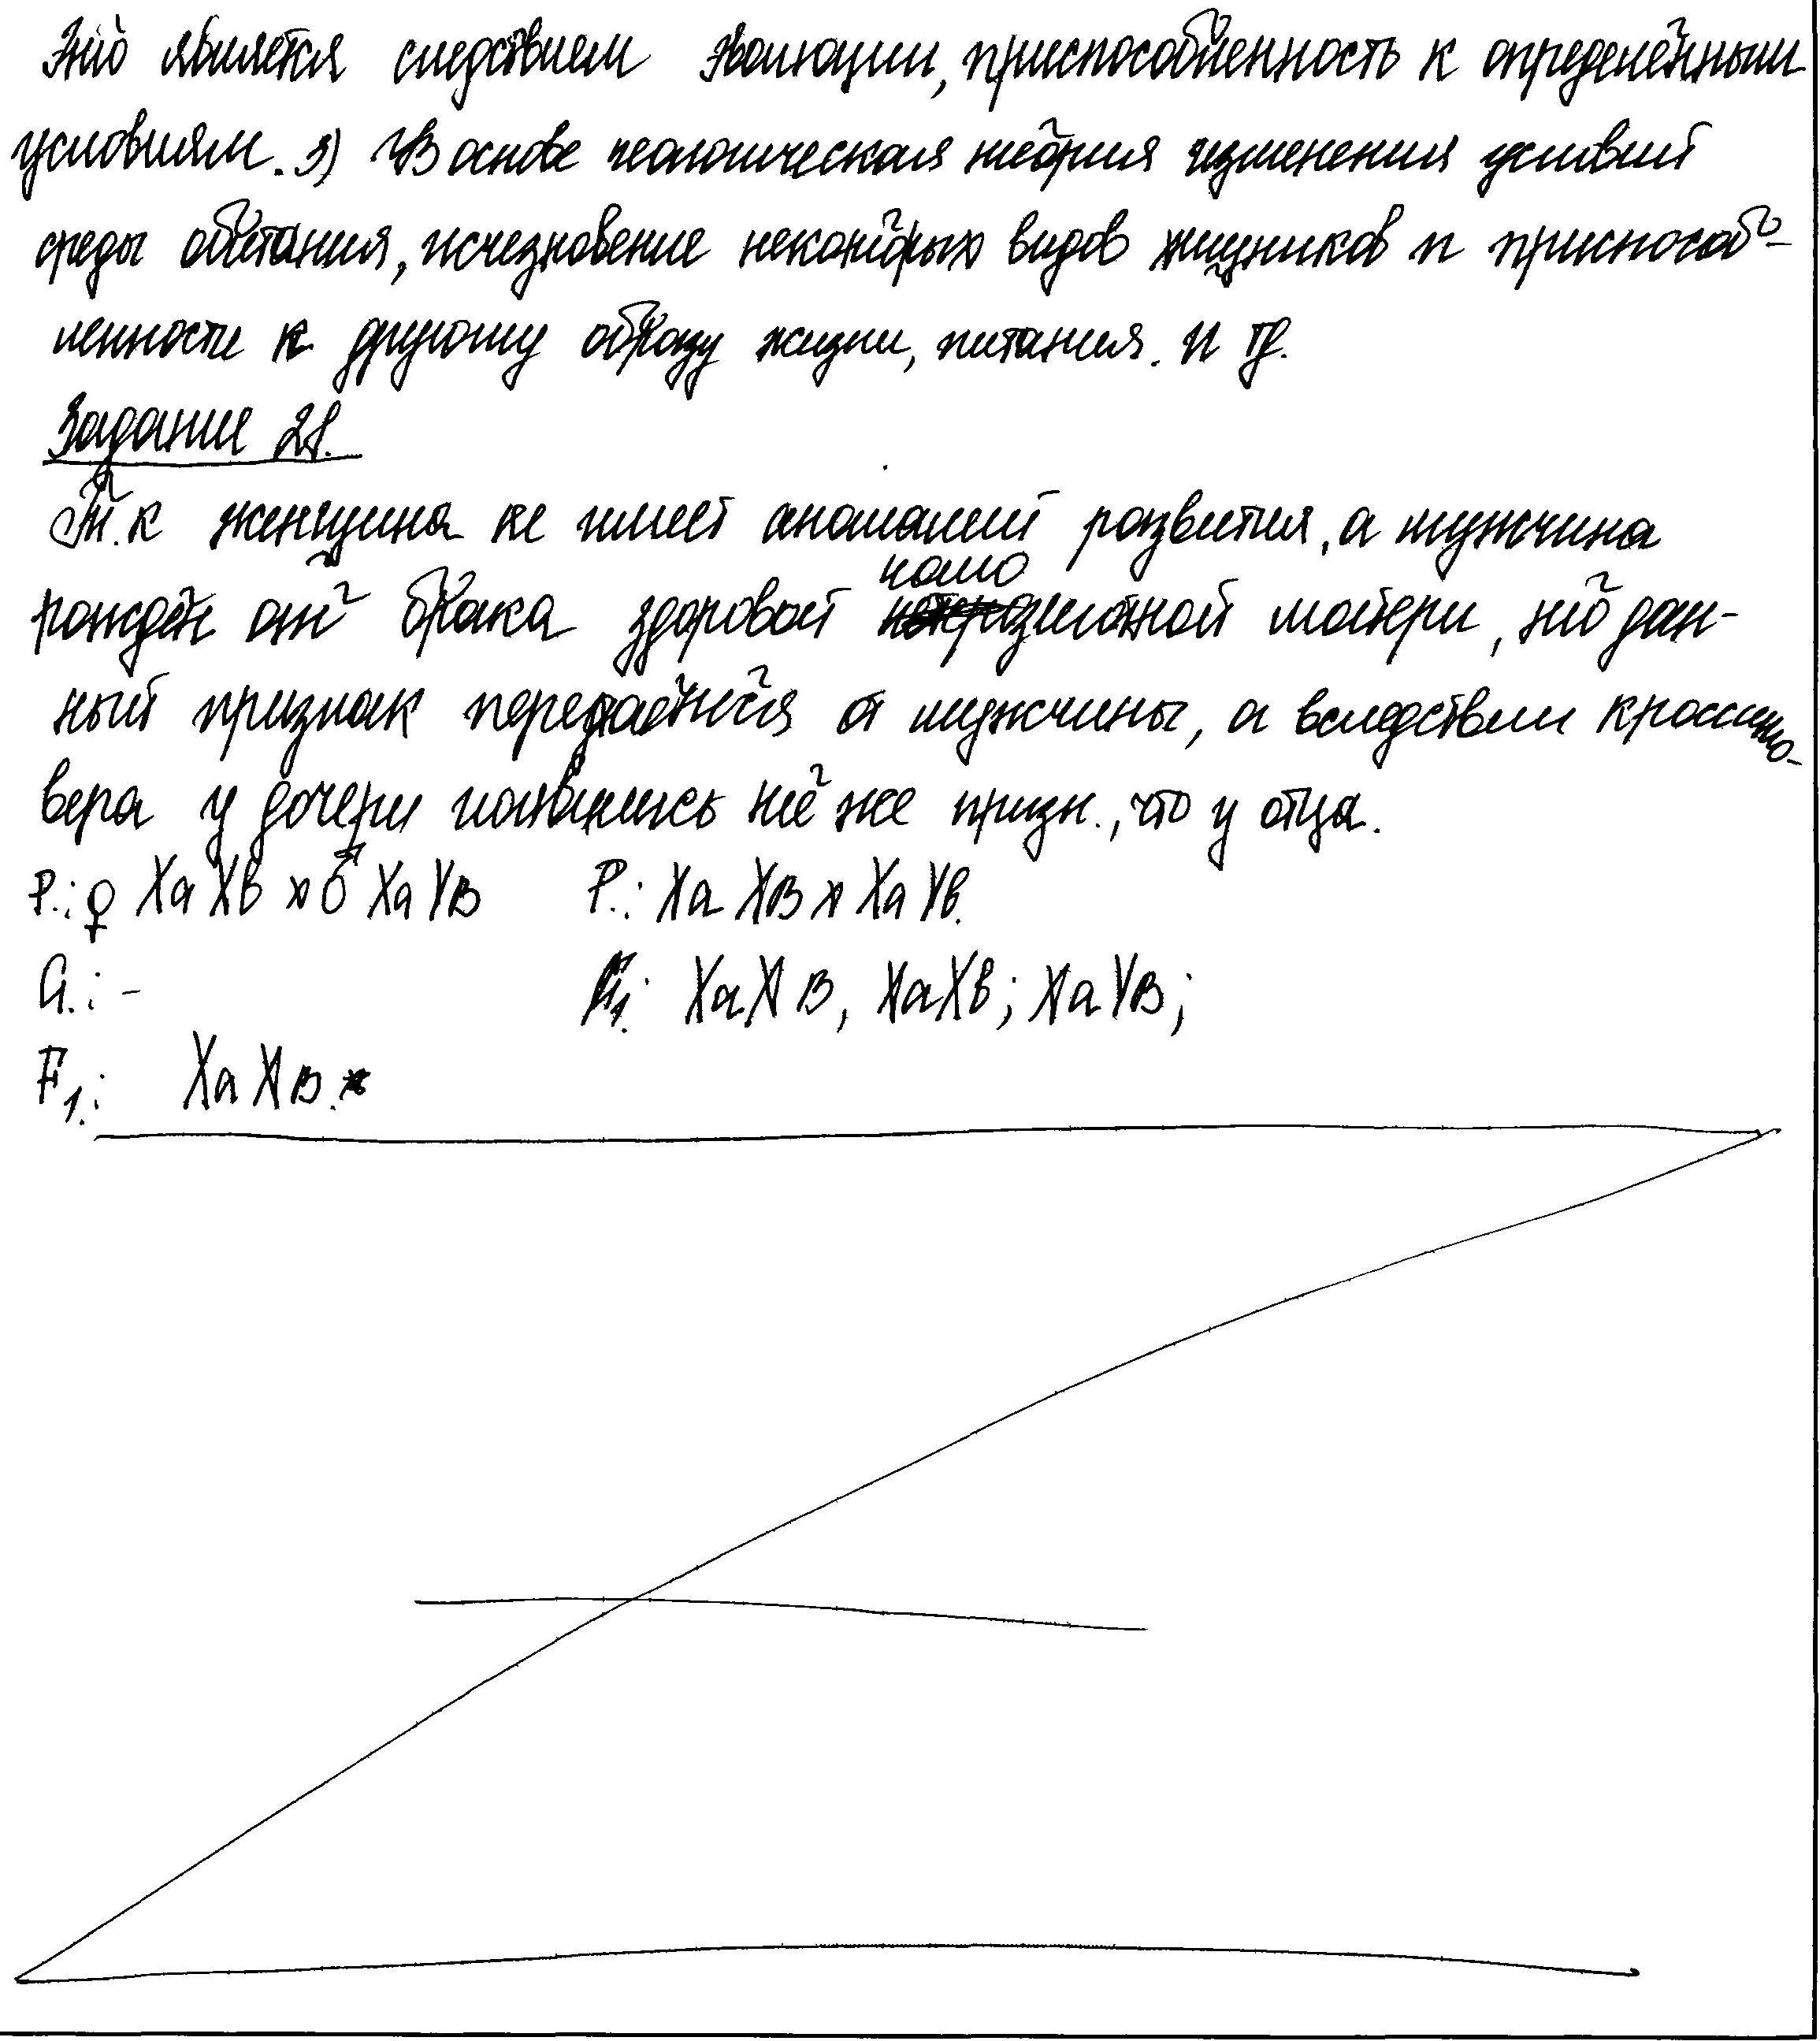 Это является следствием эволюции, приспособленность к определённым
условиям. 3) В основе геологическая теория изменения условий
среды обитания, исчезновение некоторых видов хищников и приспособ-
ленности к другому образу жизни, питания. и тд.
Задание 28.
Т.к женщина не имеет аномалий развития, а мужчина
рождён от брака здоровой гомозиготной матери, то дан-
ный признак передаётся от мужчины, а вследствии кроссинго-
вера у дочери появились те же призн., что у отца.
P.: ♀ Xa Xb x ♂ Xa YB P.: Xa XB x Xa Yb.
G.: - F1: XaXB, XaXb; XaYB;
F1.: XaXB.